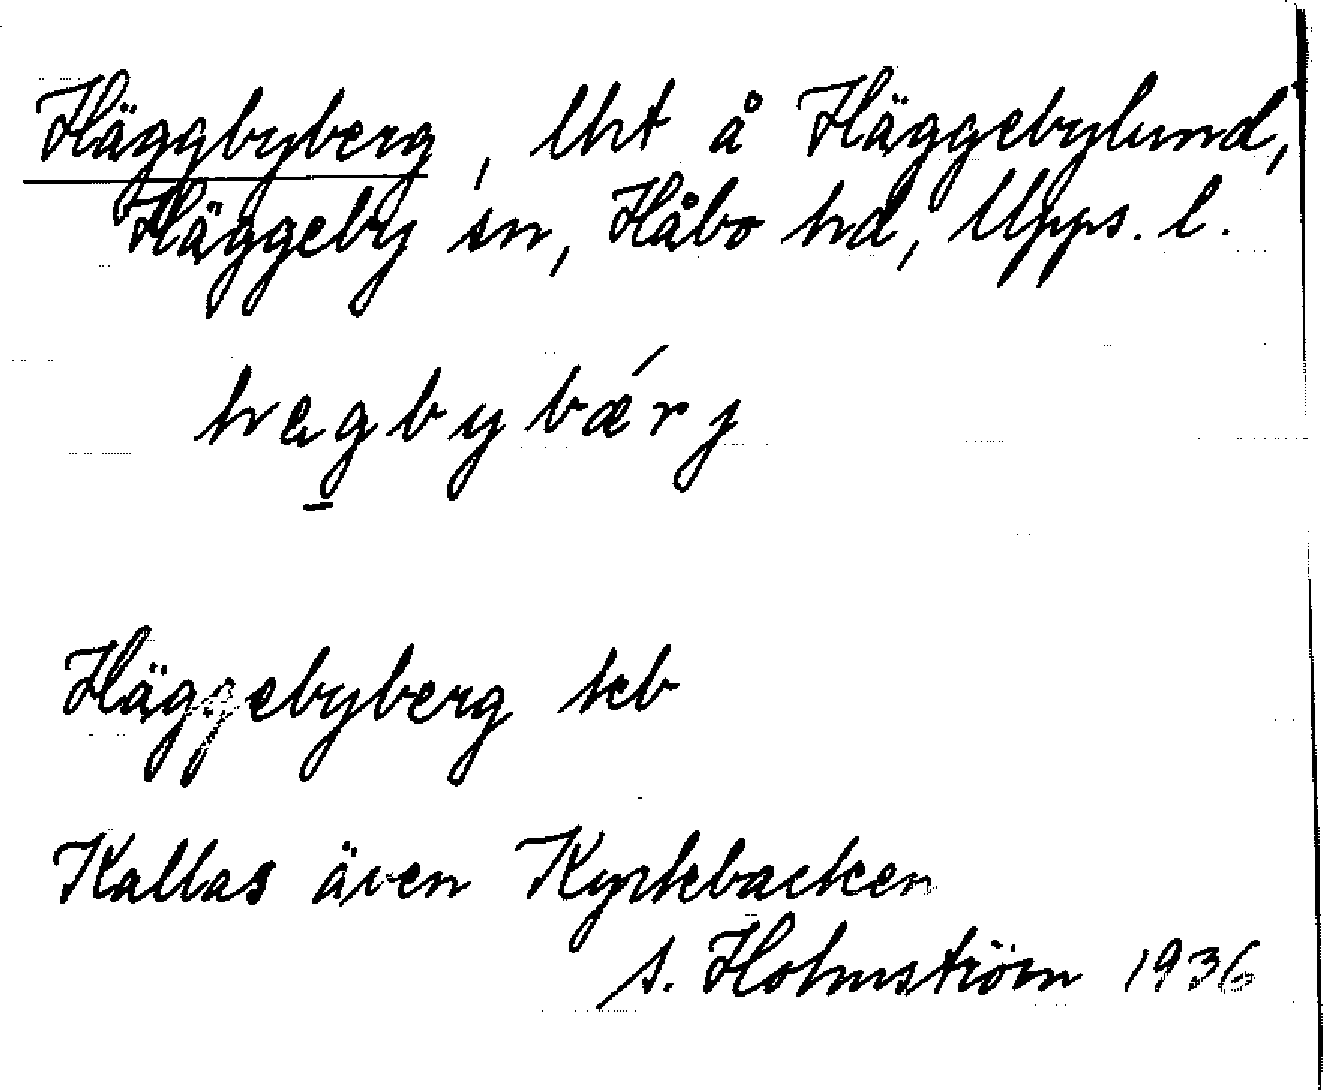 Häggbyberg, lht å Häggebylund,
Häggeby sn, Håbo hd, Upps. l.
hægbybǽrj
Häggebyberg kb
Kallas även Kyrkbacken
S. Holmström 1936